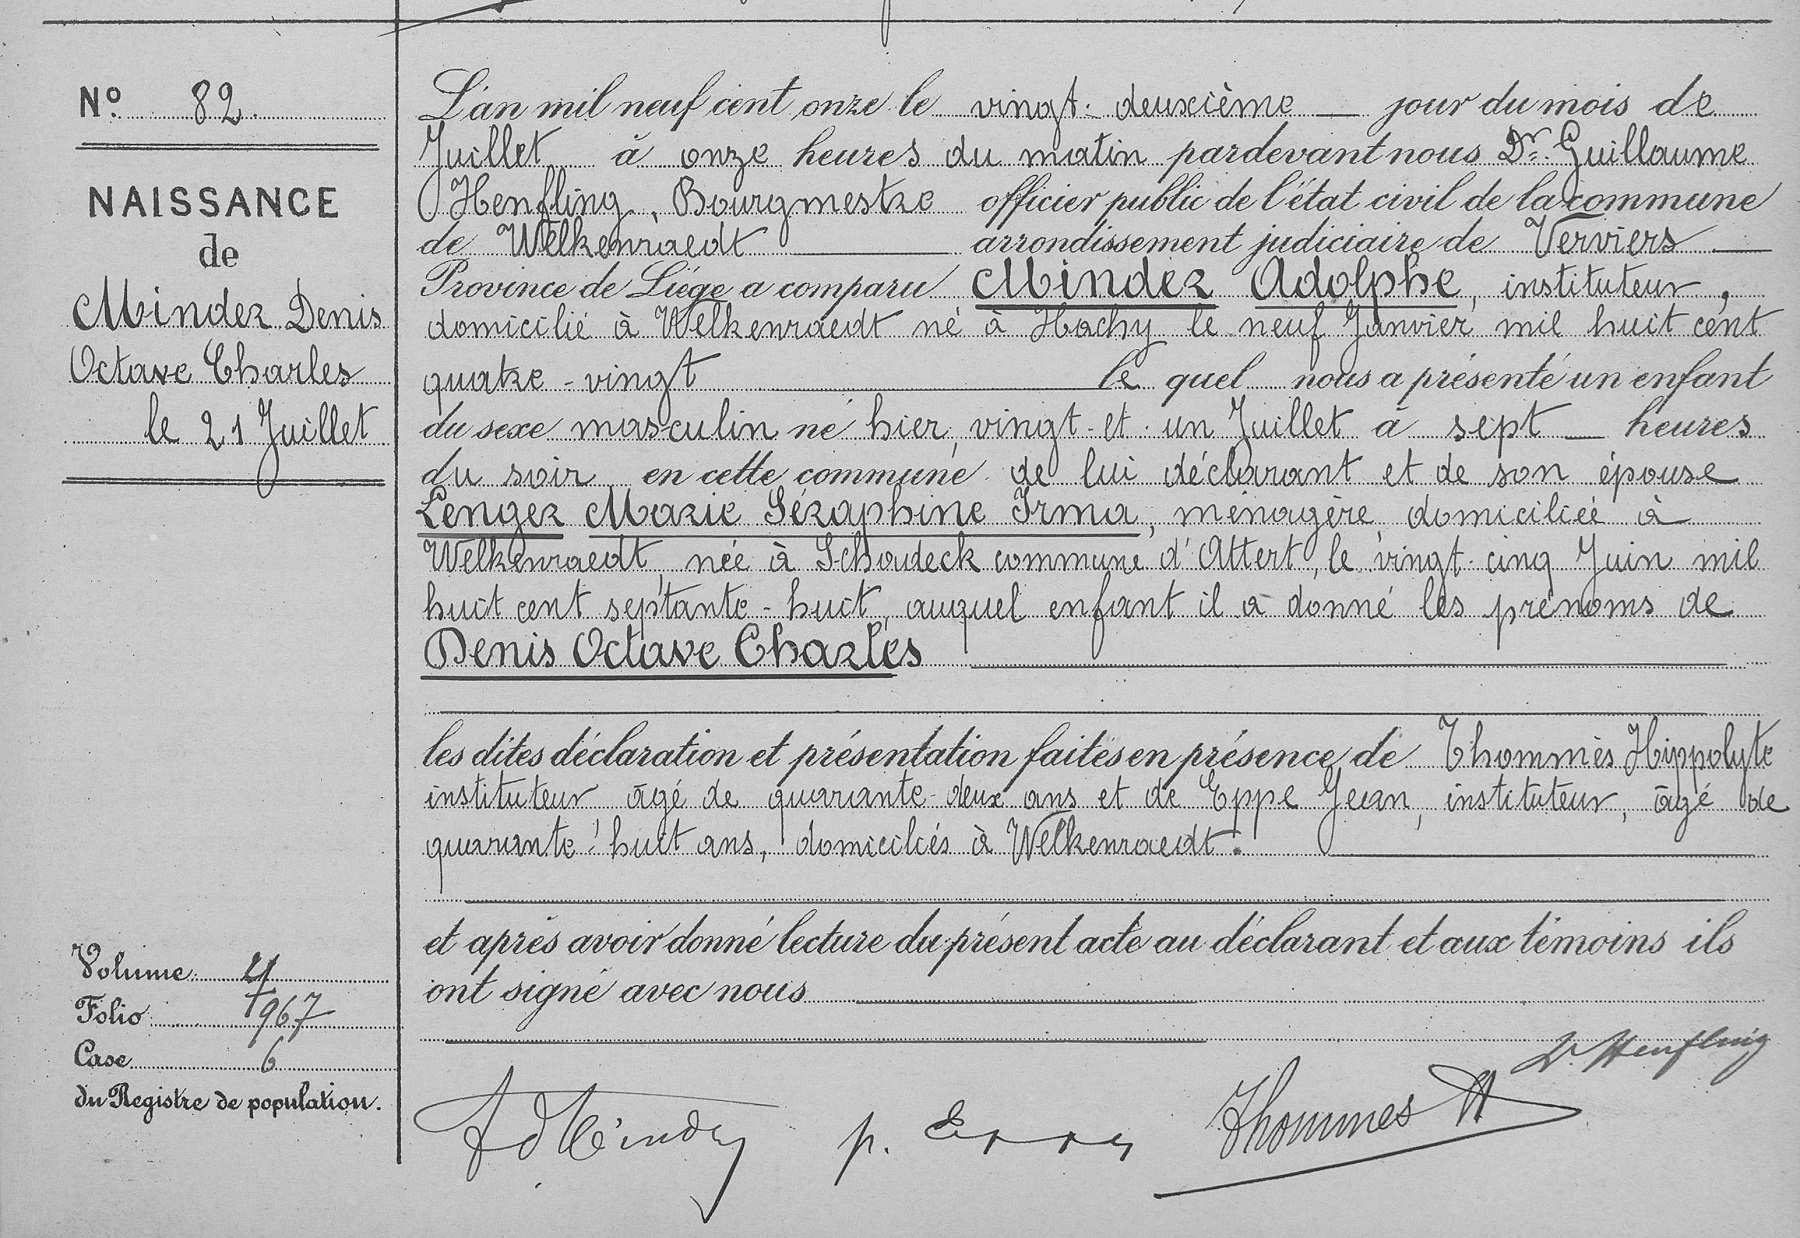 Nº 82.
NAISSANCE
de
Minder Denis
Octave Charles
le 21 Juillet
Volume 4
Folio 967
Case 6
du Registre de population.
L'an mil neuf cent onze le vingt-deuxième jour du mois de
Juillet à onze heures du matin pardevant nous Dr. Guillaume
Henfling, Bourgmestre officier public de l'état civil de la commune
de Welkenraedt arrondissement judiciaire de Verviers
Province de Liége a comparu Minder Adolphe, instituteur,
domicilié à Welkenraedt né à Hachy le neuf Janvier mil huit cent
quatre-vingt le quel nous a présenté un enfant
du sexe masculin né hier, vingt-et-un Juillet à sept heures
du soir en cette commune de lui déclarant et de son épouse
Lenger Marie Séraphine Irma, ménagère domiciliée à
Welkenraedt, née à Schadeck commune d'Attert, le vingt-cinq Juin mil
huit cent septante-huit, auquel enfant il a donné les prénoms de
Denis Octave Charles
les dites déclaration et présentation faites en présence de Thommès Hippolyte
instituteur âgé de quarante-deux ans et de Eppe Jean, instituteur, âgé de
quarante-huit ans, domiciliés à Welkenraedt.
et après avoir donné lecture du présent acte au déclarant et aux témoins ils
ont signé avec nous
Dr Henfling
Ad Minder J. Eppe Thommes H